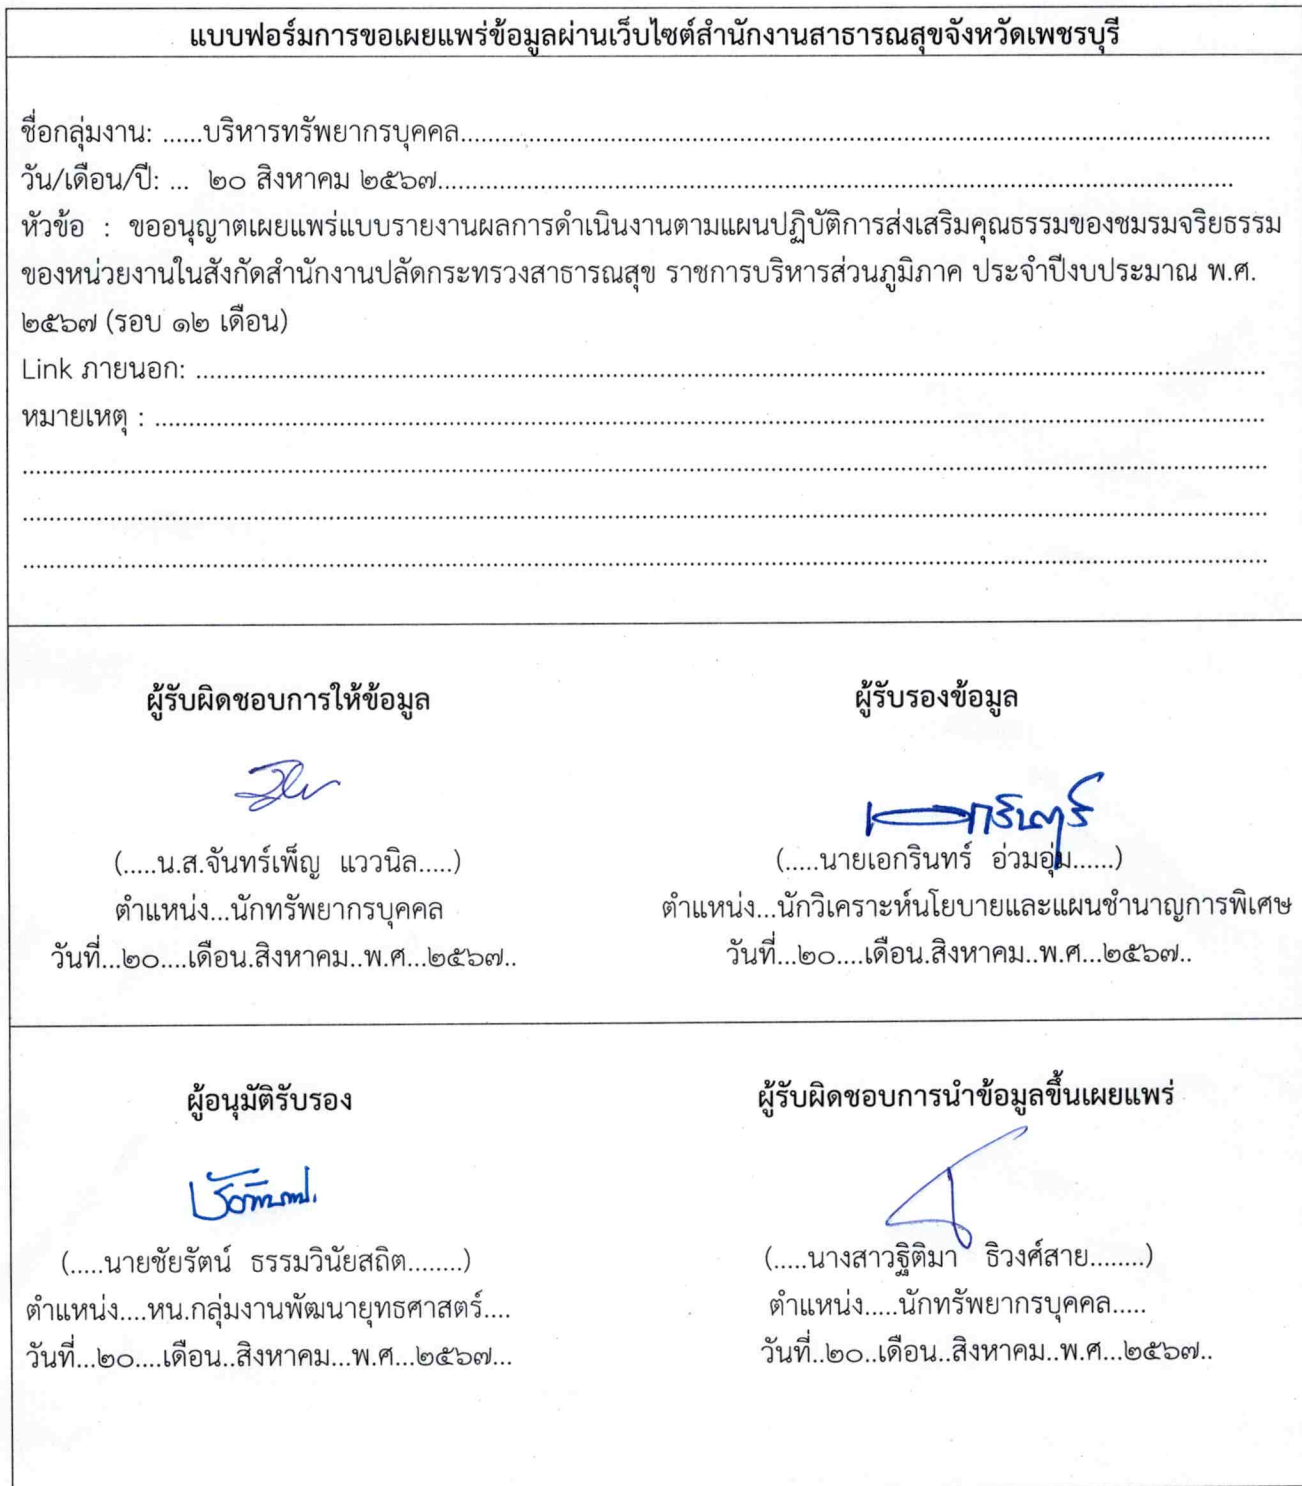 แบบฟอร์มการขอเผยแพร่ข้อมูลผ่านเว็บไซต์สำนักงานสาธารณสุขจังหวัดเพชรบุรี
ชื่อกลุ่มงาน: ......บริหารทรัพยากรบุคคล..........................................................................................................................
วัน/เดือน/ปี: ... ๒๐ สิงหาคม ๒๕๖๗.......................................................................................................................
หัวข้อ : ขออนุญาตเผยแพร่แบบรายงานผลการดำเนินงานตามแผนปฏิบัติการส่งเสริมคุณธรรมของชมรมจริยธรรม
ของหน่วยงานในสังกัดสำนักงานปลัดกระทรวงสาธารณสุข ราชการบริหารส่วนภูมิภาค ประจำปีงบประมาณ พ.ศ.
๒๕๖๗ (รอบ ๑๒ เดือน)
Link ภายนอก: ................................................................................................................................................................
หมายเหตุ : ......................................................................................................................................................................
...........................................................................................................................................................................................
...........................................................................................................................................................................................
...........................................................................................................................................................................................
ผู้รับผิดชอบการให้ข้อมูล
(.....น.ส.จันทร์เพ็ญ แววนิล.....)
ตำแหน่ง...นักทรัพยากรบุคคล
วันที่...๒๐....เดือน.สิงหาคม..พ.ศ...๒๕๖๗..
ผู้รับรองข้อมูล
เอกรินทร์
(.....นายเอกรินทร์ อ่วมอุ่ม......)
ตำแหน่ง...นักวิเคราะห์นโยบายและแผนชำนาญการพิเศษ
วันที่...๒๐....เดือน.สิงหาคม..พ.ศ...๒๕๖๗..
ผู้อนุมัติรับรอง
(.....นายชัยรัตน์ ธรรมวินัยสถิต........)
ตำแหน่ง....หน.กลุ่มงานพัฒนายุทธศาสตร์....
วันที่...๒๐....เดือน..สิงหาคม...พ.ศ...๒๕๖๗...
ผู้รับผิดชอบการนำข้อมูลขึ้นเผยแพร่
(.....นางสาวฐิติมา ธิวงศ์สาย........)
ตำแหน่ง.....นักทรัพยากรบุคคล.....
วันที่..๒๐..เดือน..สิงหาคม..พ.ศ...๒๕๖๗..